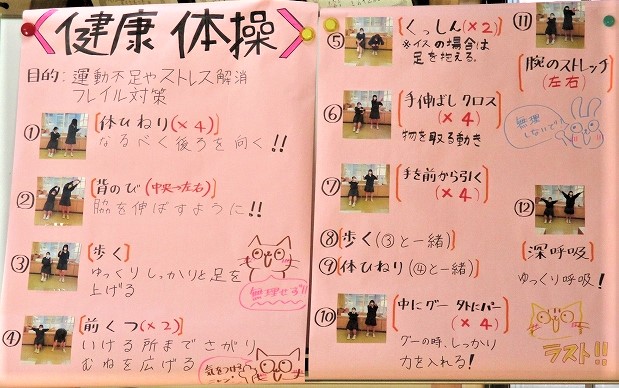 健康 体操
目的: 運動不足やストレス解消
フレイル対策
① 体ひねり(×4)
なるべく後ろを向く!!
② 背のび(中央→左右)
脇を伸ばすように!!
③ 歩く
ゆっくりしっかりと足を
上げる
無理せず!!
④ 前くつ(×2)
いける所までさがり
むねを広げる
気をつける
⑤ くっしん(×2)
※イスの場合は
足を抱える。
⑥ 手伸ばしクロス
(×4)
物を取る動き
⑦ 手を前から引く
(×4)
⑧ 歩く(③と一緒)
⑨ 体ひねり(④と一緒)
⑩ 中にグー 外にパー
(×4)
グーの時、しっかり
力を入れる!
⑪
腕のストレッチ
(左右)
無理
しないで!
⑫
深呼吸
ゆっくり呼吸!
ラスト!!